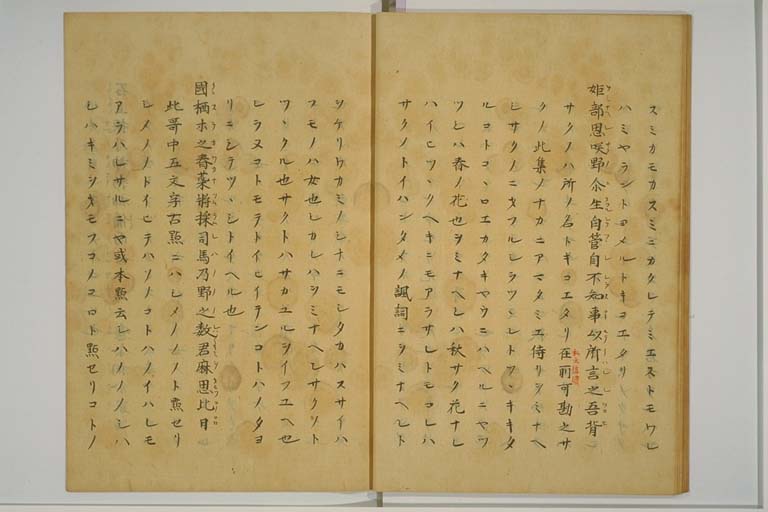 スミカモカスミニカクレテミエストモワレ
ハミヤラントヨメルトキコエタリ
姫部思咲野尓生白管自不知事以所言之吾背
サクノハ所ノ名トキコエタリ在前可勘之サ
クノ此集ノナカニアマタミエ侍リシミナヘ
シサクノニタフルシラツヽシトツヽキキタ
ルコトコヽロエカタキヤウニハヘルニヤツ
ツシハ春ノ花也ヲミナヘシハ秋サク花ナレ
ハイヒツヽクヘキニモアラサレトモコレハ
サクノトイハンタメノ諷詞ニヲミナヘシト
ツケリワカミノシナニモシタカハスサイハ
フモノハ女也シカレハヲミナヘシサクソト
ツヽクル也サクトハサカユルヲイフユヘ也
シラヌコトモテトイヒイテンコトハノタヨ
リニシラツヽシトイヘル也
國栖木之春菜將採司馬乃野之数君麻思比日
此哥中五文字古點ニハシメノノノト點セリ
シメノノトイヒテハソノコトハノイハレモ
アラハレサルニヤ或本點云シハノノノシハ
シハキミヲオモフコノコロト點セリコトノ